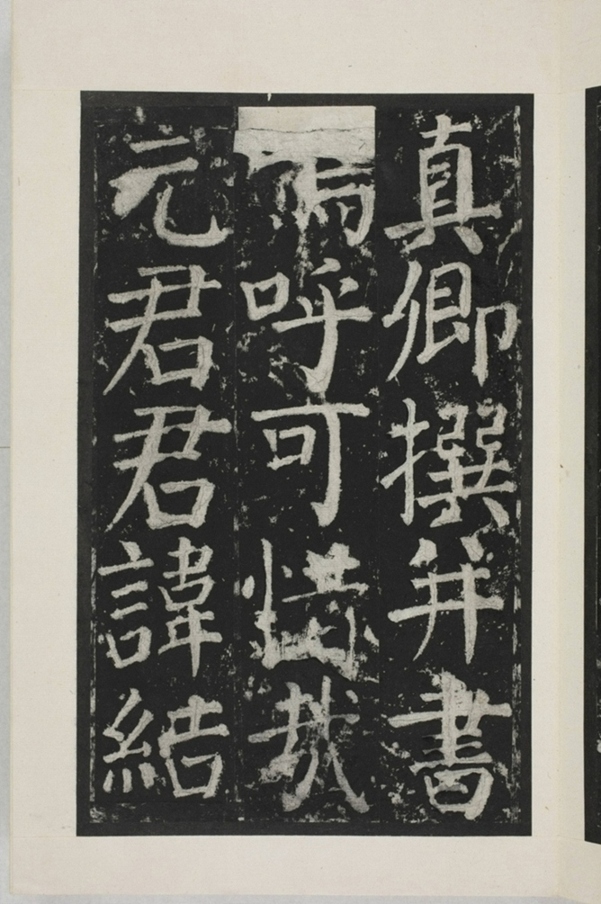 真卿撰并書
嗚呼可惜哉
元君君諱結